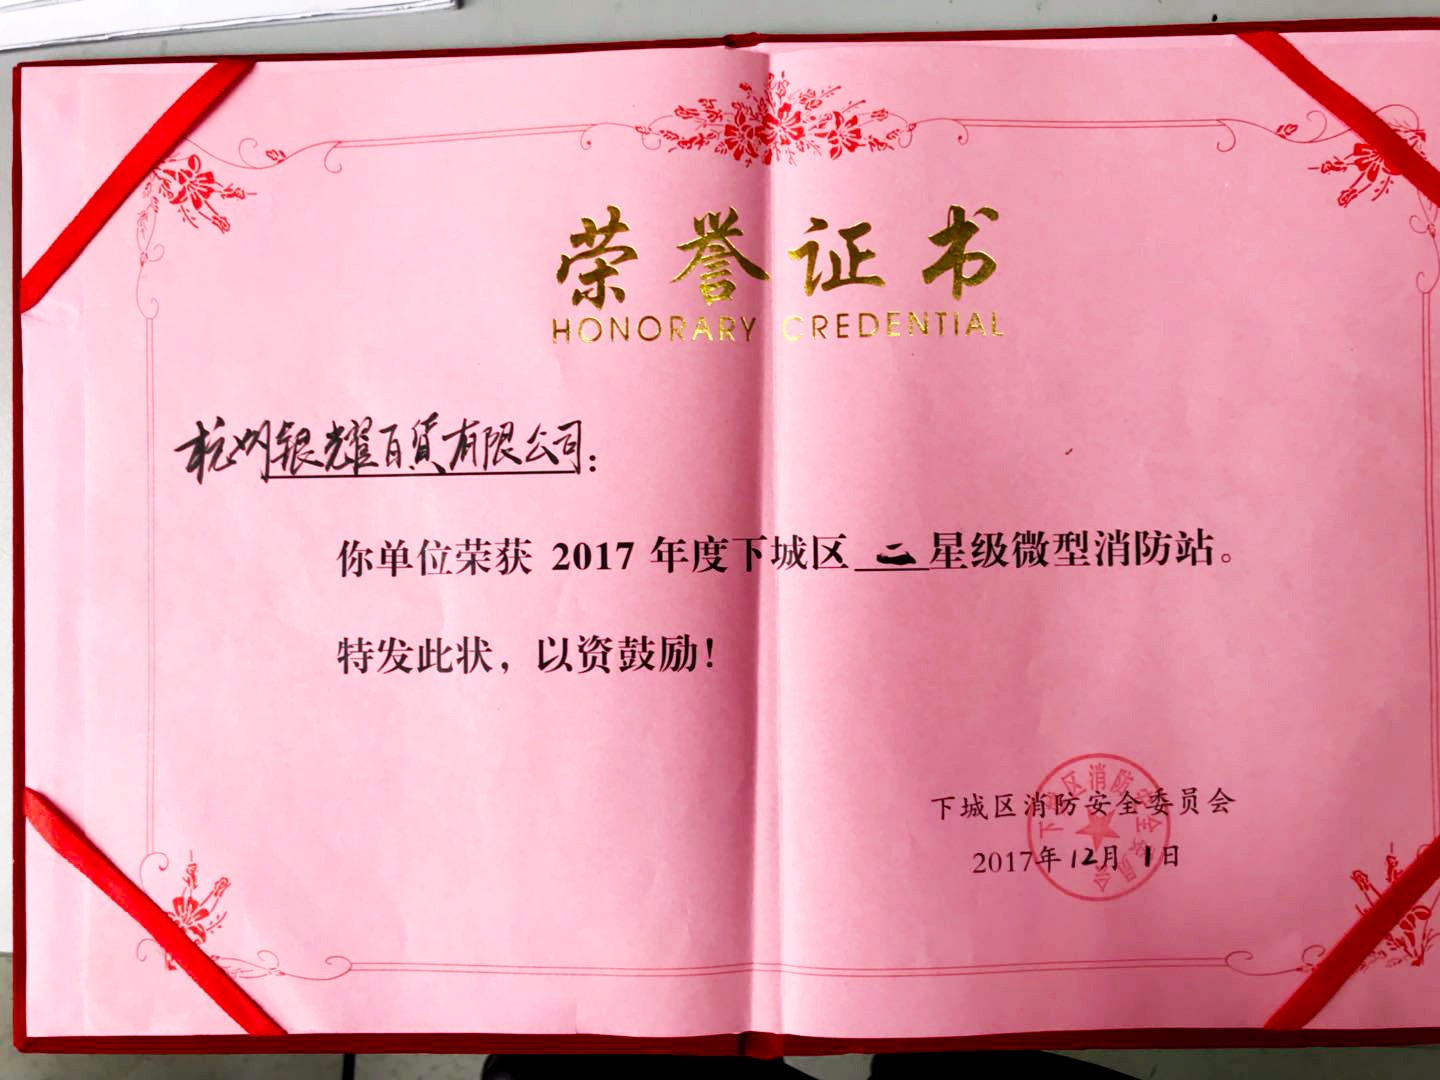 荣誉证书
HONORARY CREDENTIAL
杭州银耀百货有限公司：
你单位荣获 2017 年度下城区二星级微型消防站。
特发此状，以资鼓励！
下城区消防安全委员会
2017年12月1日
下城区消防安全委员会